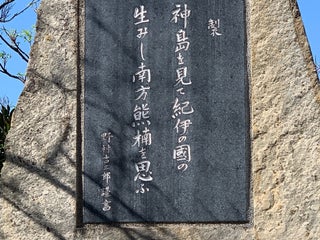 製
神島を見て紀伊の國の
生みし南方熊楠を思ふ
野村吉三郎謹書